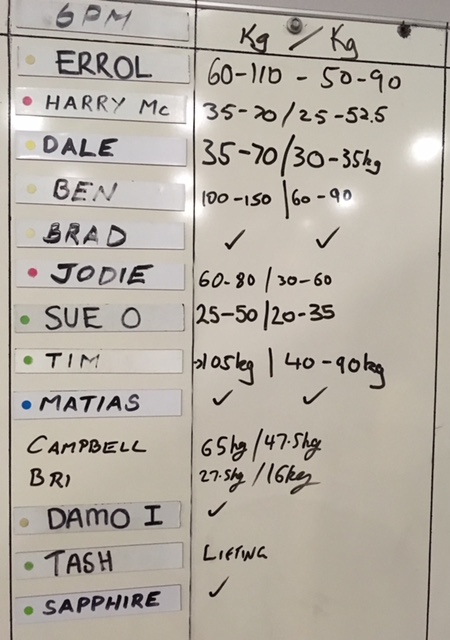 6PM Kg / Kg
ERROL 60-110 - 50-90
HARRY Mc 35-70 / 25-52.5
DALE 35-70 / 30-35kg
BEN 100-150 | 60-90
BRAD ✓ ✓
JODIE 60-80 / 30-60
SUE O 25-50 | 20-35
TIM →105kg | 40-90kg
MATIAS ✓ ✓
CAMPBELL 65kg / 47.5kg
BRI 27.5kg / 16kg
DAMO I ✓
TASH LIFTING
SAPPHIRE ✓